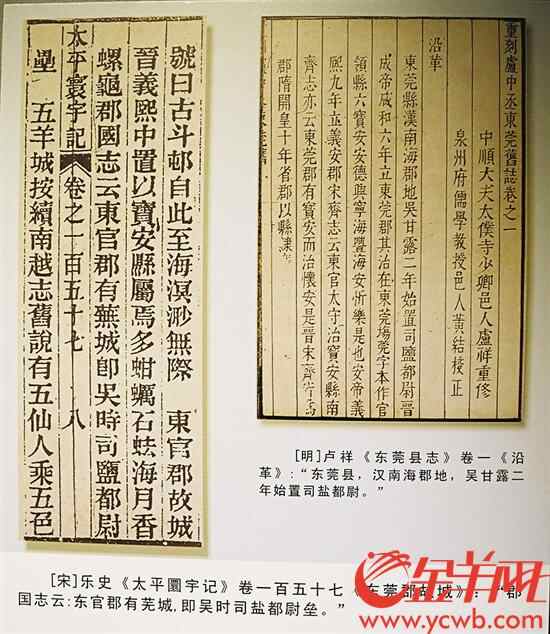 號曰古斗邨自此至海溟渺無際 東官郡故城
晉義熙中置以寳安縣屬焉多蚶蠣石蛙海月香
螺龜郡國志云東官郡有蕪城卽吳時司鹽都尉
太平寰宇記 卷之一百五十七 八
壘 五羊城按續南越志舊說有五仙人乘五色
重刻盧中丞東莞舊誌卷之一
中順大夫太僕寺少卿邑人盧祥重修
泉州府儒學教授邑人黃結校正
沿革
東莞縣漢南海郡地吳甘露二年始置司鹽都尉晉
成帝咸和六年立東莞郡其治在東莞塲莞字本作官
領縣六寶安安德興寧海豐海安忻樂是也安帝義
熙九年立義安郡宋齊志云東官太守治寶安縣南
齊志亦云東莞郡有寶安而治懷安是晉宋齊皆為
郡隋開皇十年省郡以縣隸
[明]卢祥《东莞县志》卷一《沿
革》:“东莞县，汉南海郡地，吴甘露二
年始置司盐都尉。”
[宋]乐史《太平圜宇记》卷一百五十七《东莞郡故城》:“郡
国志云:东官郡有芜城,即吴时司盐都尉垒。”
金羊网
www.ycwb.com